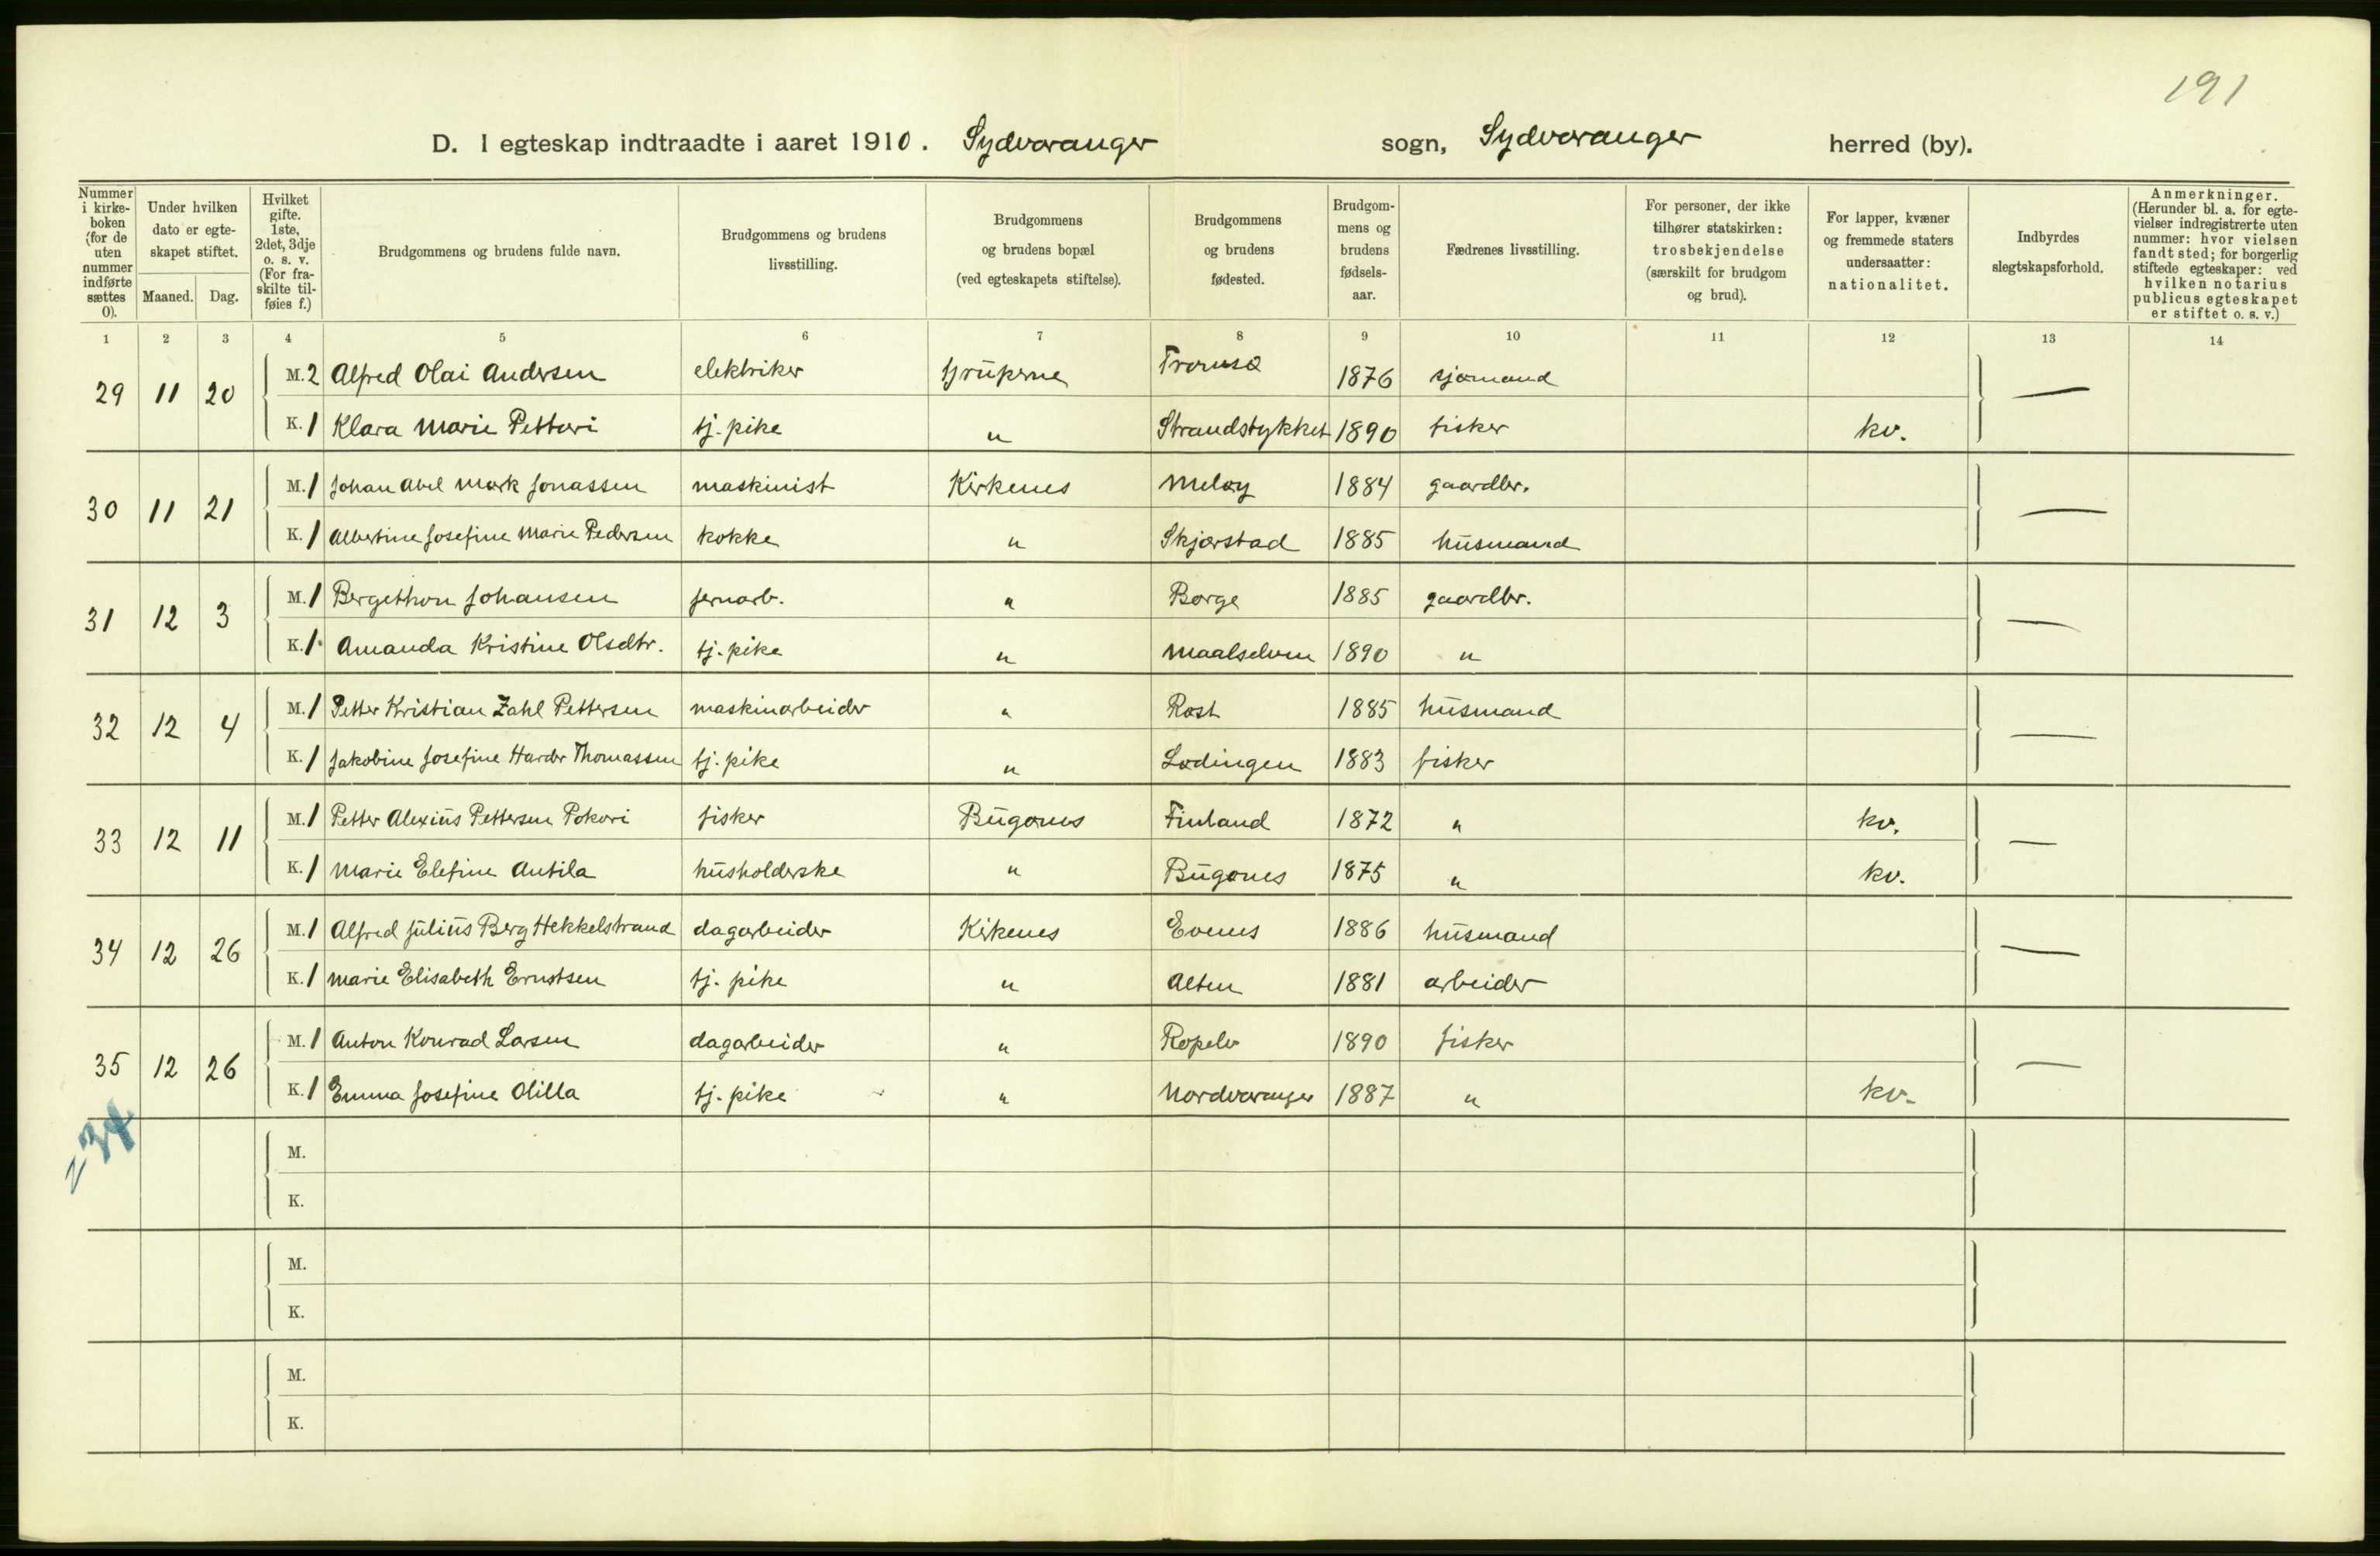 191
D. I egteskap indtraadte i aaret 1910. Sydvaranger sogn, Sydvaranger herred (by).
Nummer i kirkeboken (for de uten nummer indførte sættes 0). | Under hvilken dato er egteskapet stiftet. Maaned. Dag. | Hvilket gifte. 1ste, 2det, 3dje o. s. v. (For fraskilte tilføies f.) | Brudgommens og brudens fulde navn. | Brudgommens og brudens livsstilling. | Brudgommens og brudens bopæl (ved egteskapets stiftelse). | Brudgommens og brudens fødested. | Brudgommens og brudens fødselsaar. | Fædrenes livsstilling. | For personer, der ikke tilhører statskirken: trosbekjendelse (særskilt for brudgom og brud). | For lapper, kvæner og fremmede staters undersaatter: nationalitet. | Indbyrdes slegtskapsforhold. | Anmerkninger. (Herunder bl. a. for egtevielser indregistrerte uten nummer: hvor vielsen fandt sted; for borgerlig stiftede egteskaper: ved hvilken notarius publicus egteskapet er stiftet o. s. v.)
1 2 3 4 5 6 7 8 9 10 11 12 13 14
29 11 20 M. 2 Alfred Olai Andersen elektriker Gruberne Tromsø 1876 sjømand —
K. 1 Klara Marie Pettari tj. pike " Strandstykket 1890 fisker kv.
30 11 21 M. 1 Johan Abel Mørk Jonassen maskinist Kirkenes Meløy 1884 gaardbr. —
K. 1 Albertine Josefine Marie Pedersen kokke " Skjærstad 1885 husmand
31 12 3 M. 1 Bergethon Johansen jernarb. " Borge 1885 gaardbr. —
K. 1 Amanda Kristine Olsdtr. tj. pike " Maalselven 1890 "
32 12 4 M. 1 Petter Kristian Zahl Pettersen maskinarbeider " Røst 1885 husmand —
K. 1 Jakobine Josefine Harder Thomassen tj. pike " Lødingen 1883 fisker
33 12 11 M. 1 Petter Alexius Pettersen Pokari fisker Bugønes Finland 1872 " kv. —
K. 1 Marie Elefine Antila husholderske " Bugønes 1875 " kv.
34 12 26 M. 1 Alfred Julius Berg Hekkelstrand dagarbeider Kirkenes Evenes 1886 husmand —
K. 1 Marie Elisabeth Ernstsen tj. pike " Alten 1881 arbeider
35 12 26 M. 1 Anton Konrad Larsen dagarbeider " Ropelv 1890 fisker —
K. 1 Emma Josefine Olilla tj. pike " Nordvaranger 1887 " kv.
M.
K.
M.
K.
M.
K.